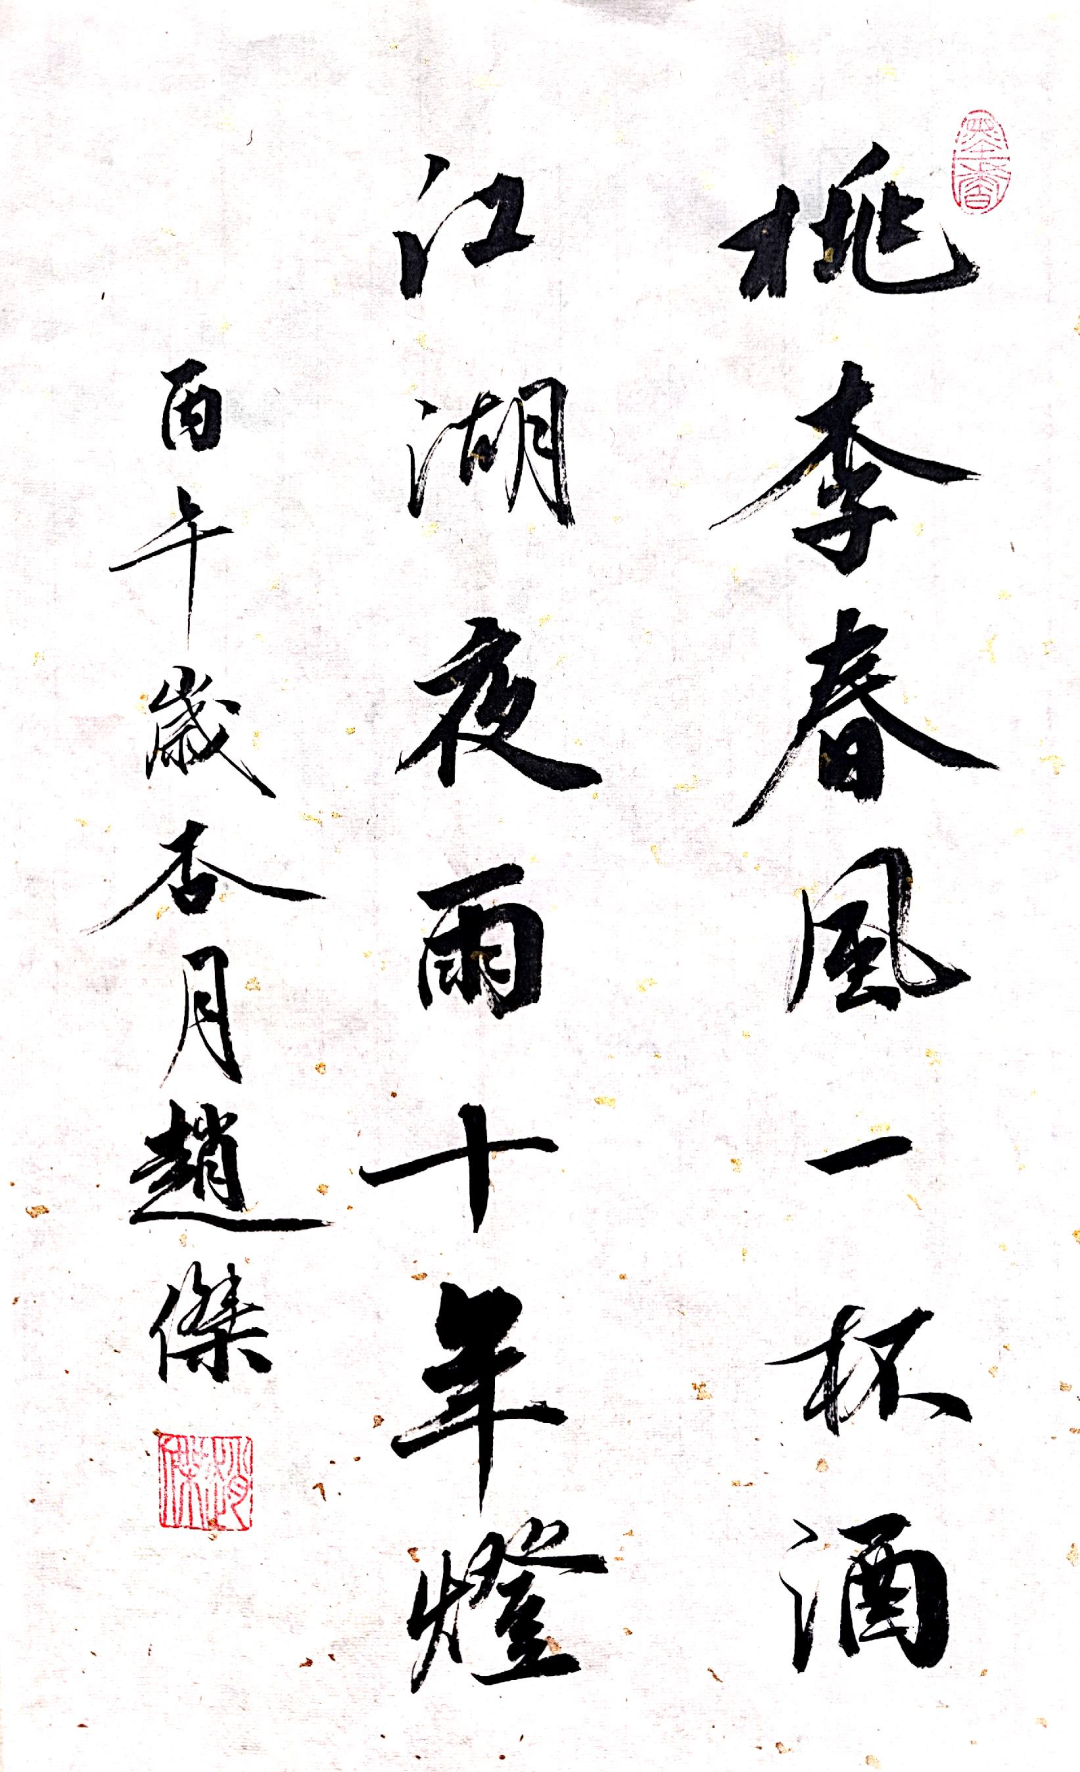 墨香
桃李春風一杯酒
江湖夜雨十年燈
丙午歲杏月趙傑
趙傑